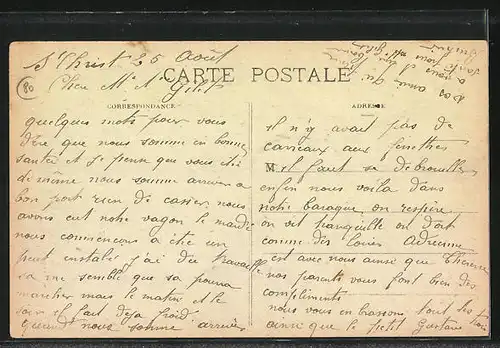 St Christ 25 Août
CARTE POSTALE
Cher Mr
CORRESPONDANCE
ADRESSE
quelques mots pour vous
dire que nous somme en bonne
santer et je pense que vous
de même nous somme arriver a
bon port rien de casser nous
avons eut notre vagon le mardi
nous commençons a etre un
peut instalé j'ai du travaille
sa me semble que sa pourra
marcher mais le matin et le
soir il fait deja froid
quend nous somme arrivés
il n'y avait pas de
careaux aux fenêtres
M il faut se debrouiller
enfin nous voila dans
notre baraque on respire
on est tranquille on dort
comme des Adrienne
est avec nous ainsi que Therese
nos parents vous font bien des
compliments
nous vous embrassons tout les trois
ainsi que le petit Gustave
80